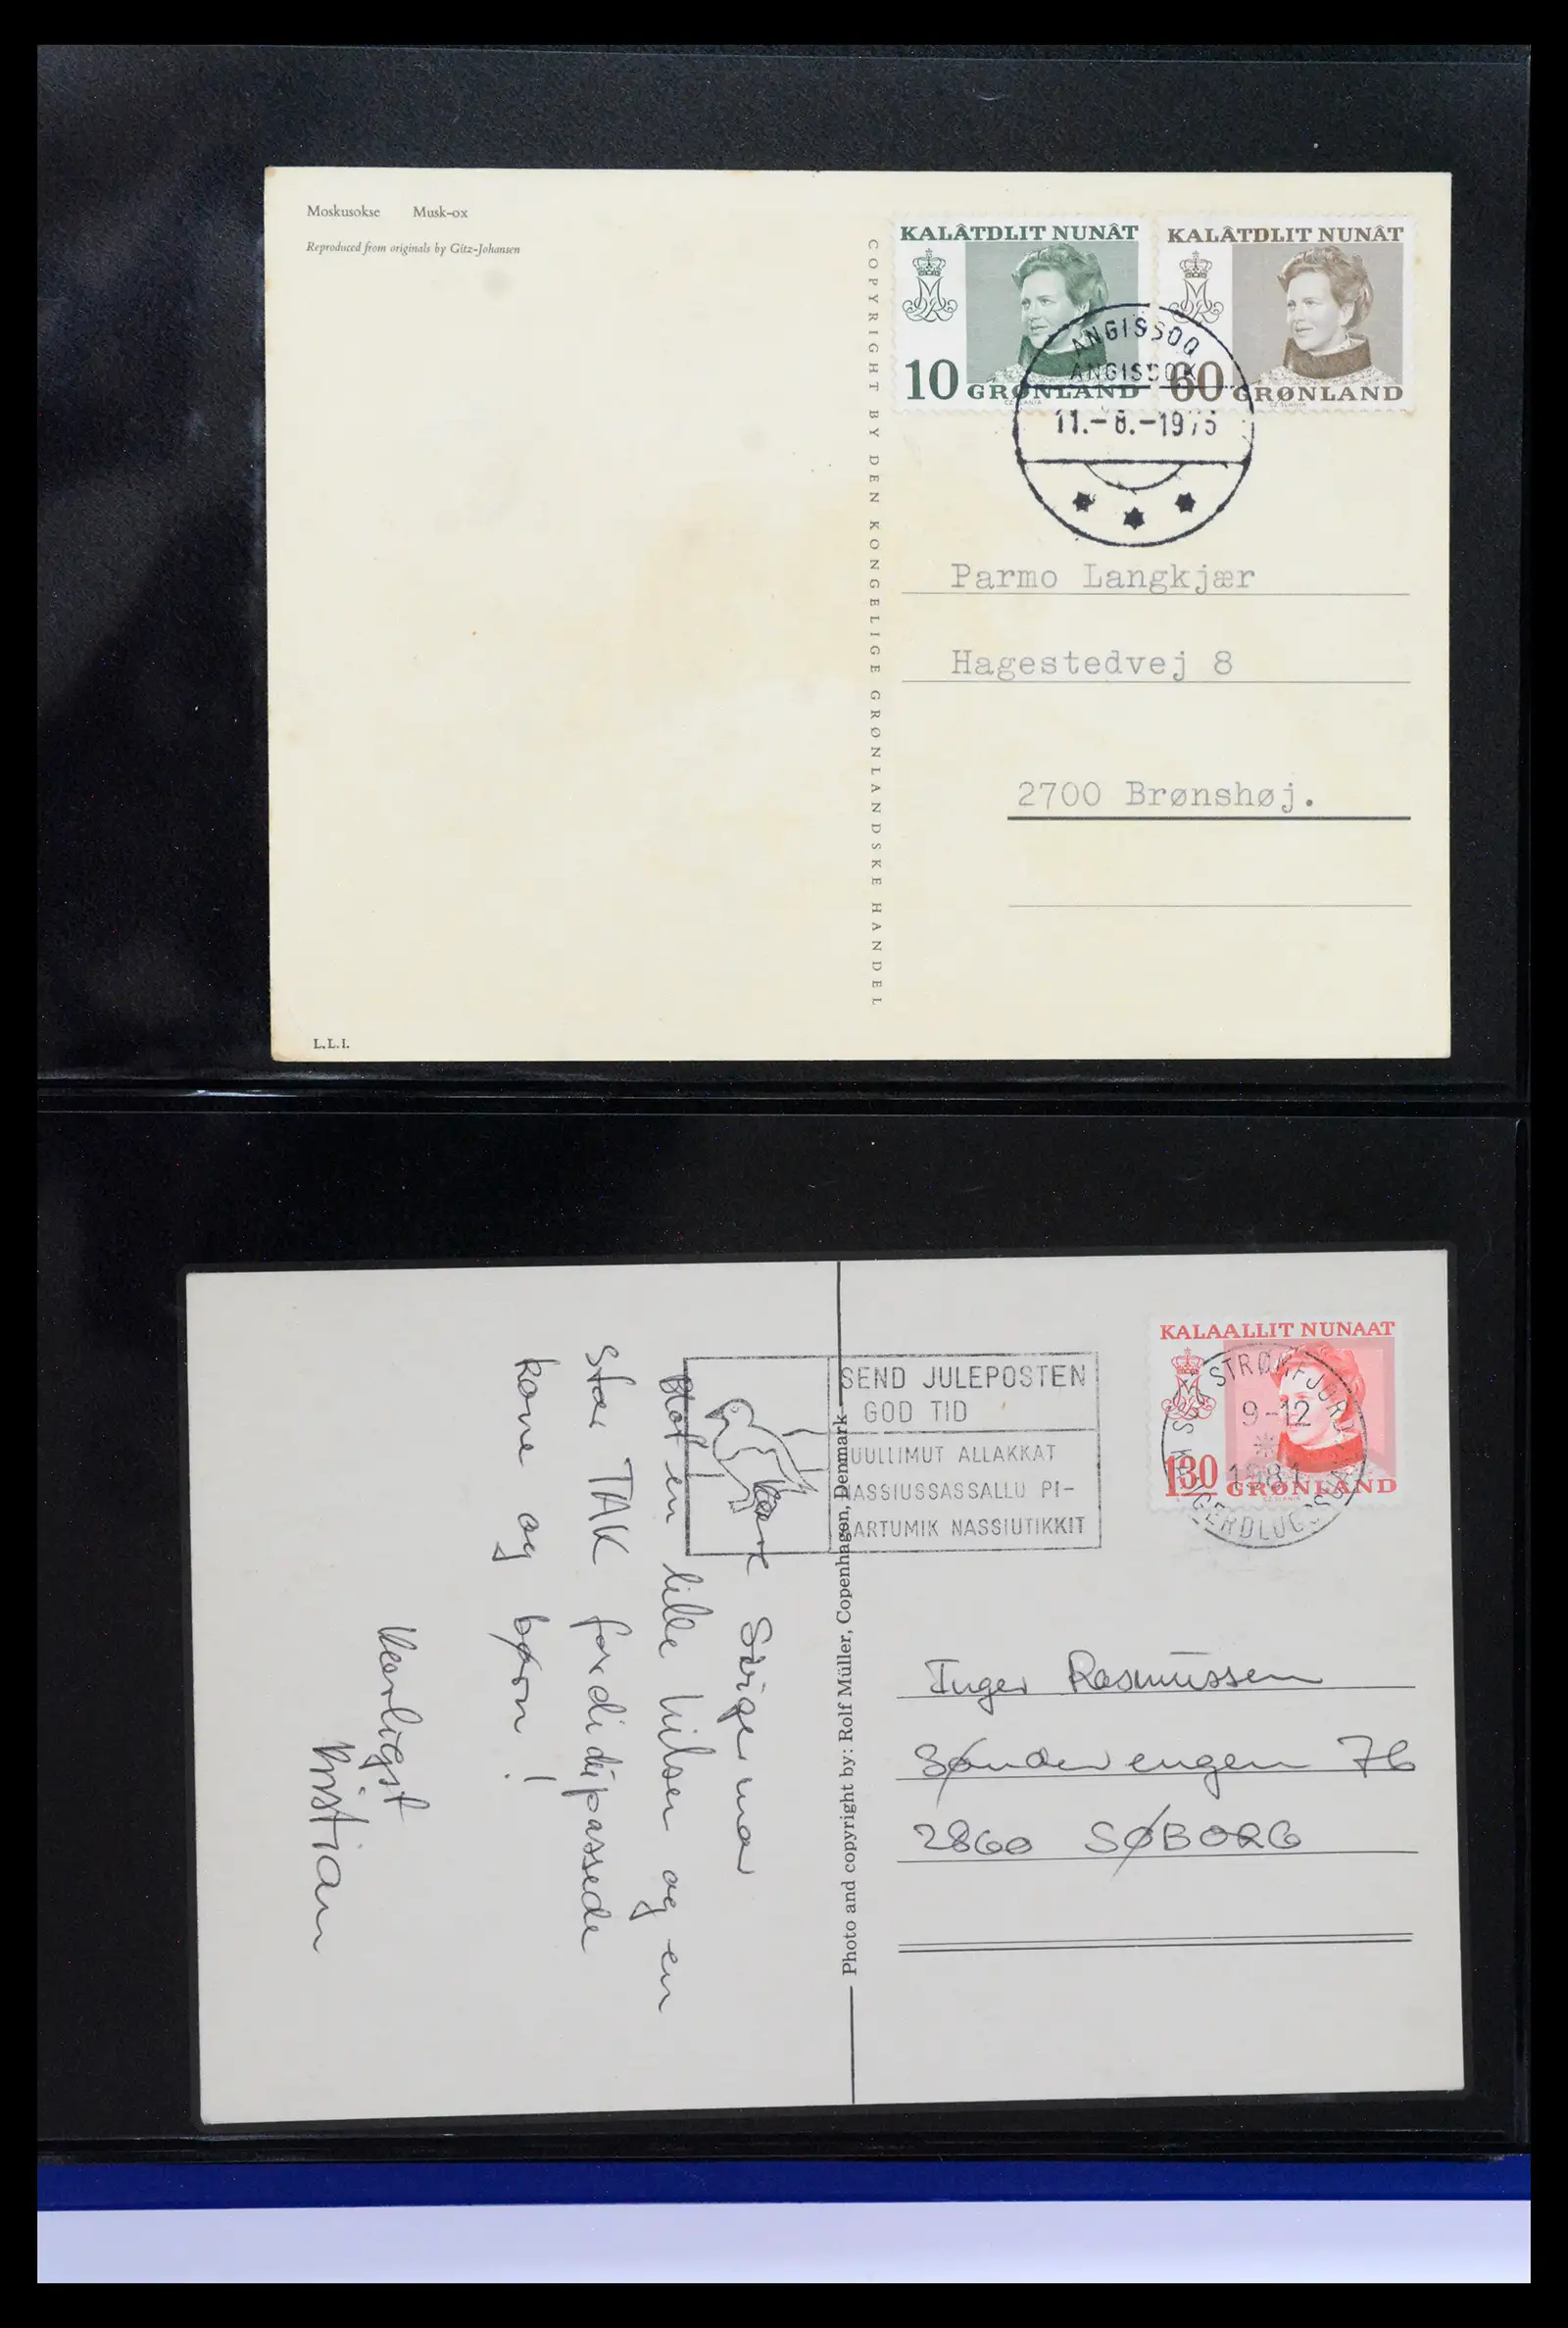 Moskusokse Musk-ox
Reproduced from originals by Gitz-Johansen
L.L.I.
COPYRIGHT BY DEN KONGELIGE GRØNLANDSKE HANDEL
KALÂTDLIT NUNÂT
10 GRØNLAND
CZ. SLANIA
KALÂTDLIT NUNÂT
60 GRØNLAND
CZ. SLANIA
ANGISSOQ
ANGISSOK
11.-8.-1975
Parmo Langkjær
Hagestedvej 8
2700 Brønshøj.
Kære Svigermor
Blot en lille hilsen og en
stor TAK fordi du passede
kone og børn!
Kærligst
Kristian
Photo and copyright by: Rolf Müller, Copenhagen, Denmark
SEND JULEPOSTEN
GOD TID
JUULLIMUT ALLAKKAT
NASSIUSSASSALLU PI-
ARTUMIK NASSIUTIKKIT
KALAALLIT NUNAAT
130 GRØNLAND
CZ. SLANIA
STRØMFJORD
9-12
1981
Inger Rasmussen
Søndererengen 76
2860 SØBORG